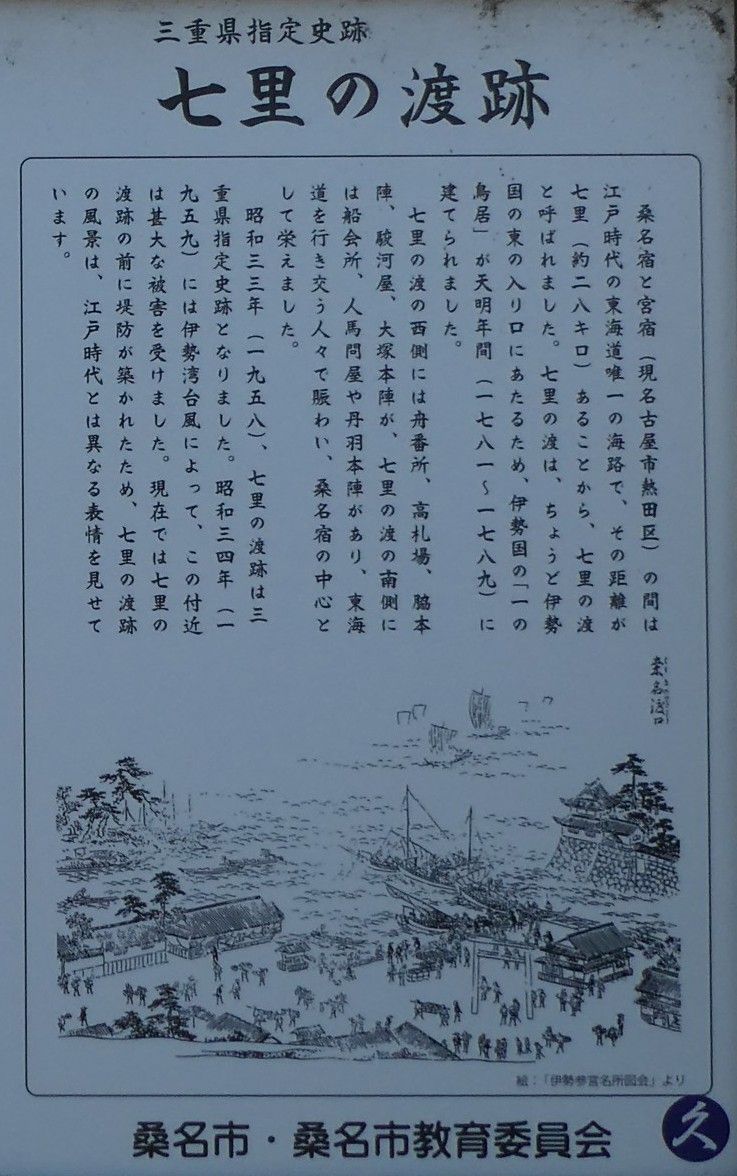 三重県指定史跡
七里の渡跡
桑名宿と宮宿（現名古屋市熱田区）の間は
江戸時代の東海道唯一の海路で、その距離が
七里（約二八キロ）あることから、七里の渡
と呼ばれました。七里の渡は、ちょうど伊勢
国の東の入り口にあたるため、伊勢国の「一の
鳥居」が天明年間（一七八一～一七八九）に
建てられました。
七里の渡の西側には舟番所、高札場、脇本
陣、駿河屋、大塚本陣が、七里の渡の南側に
は船会所、人馬問屋や丹羽本陣があり、東海
道を行き交う人々で賑わい、桑名宿の中心と
して栄えました。
昭和三三年（一九五八）、七里の渡跡は三
重県指定史跡となりました。昭和三四年（一
九五九）には伊勢湾台風によって、この付近
は甚大な被害を受けました。現在では七里の
渡跡の前に堤防が築かれたため、七里の渡跡
の風景は、江戸時代とは異なる表情を見せて
います。
桑名渡口
絵：「伊勢参宮名所図会」より
桑名市・桑名市教育委員会
久